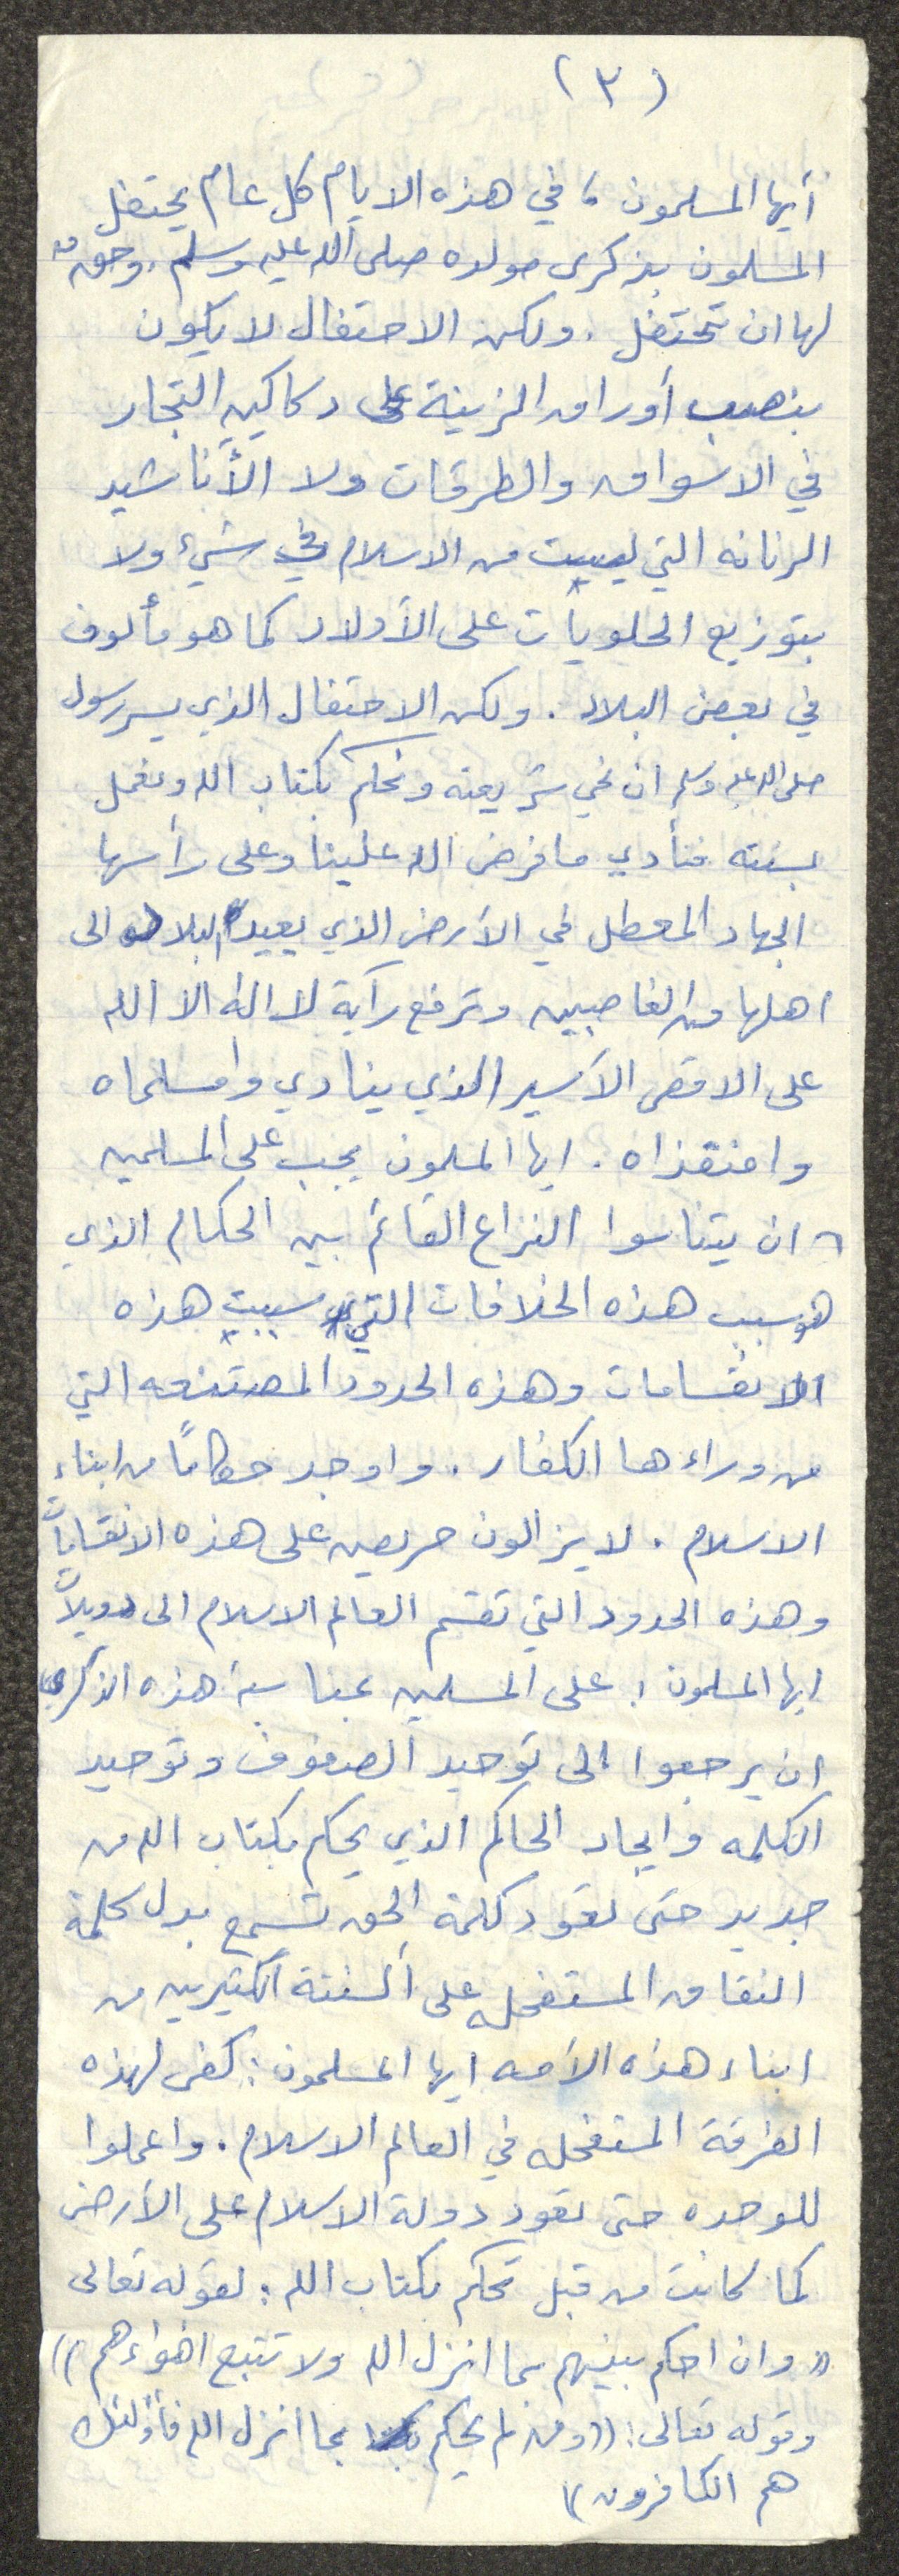 (٣)
أيها المسلمون، في هذه الايام كل عام يحتفل
المسلمون بذكرى مولده صلى الله عليه وسلم. وحق
لها ان تحتفل. ولكن الاحتفال لا يكون
بنصب أوراق الزينة على دكاكين التجار
في الاسواق والطرقات ولا الأناشيد
الرنانه التي ليست من الاسلام في شيء ولا
بتوزيع الحلويات على الأولاد كما هو مألوف
في بعض البلاد. ولكن الاحتفال الذي يسر رسول
صلى الله عليه وسلم ان نحي شريعته ونحكم بكتاب الله ونعمل
بسنته فنأدي ما فرض الله علينا وعلى رأسها
الجهاد المعطل في الأرض الذي يعيد البلاد الى
اهلها من الغاصبين وترفع رآية لا اله الا الله
على الاقصى الأسير الذي ينادي وامسلماه
وامنقذاه. ايها المسلمون يجب على المسلمين
ان يتناسوا النزاع القائم بين الحكام الذي
هو سبب هذه الخلافات التي سببت هذه
الانقسامات وهذه الحدود المصتنعه التي
من وراءها الكفار. واوجد حكامًا من ابناء
الاسلام. لا يزالون حريصين على هذه الانقسامات
وهذه الحدود التي تقسم العالم الاسلام الى دويلات
ايها المسلمون: على المسلمين بمناسبة هذه الذكرى
ان يرجعوا الى توحيد الصفوف وتوحيد
الكلمه وايجاد الحاكم الذي يحكم بكتاب الله من
جديد حتى تعود كلمة الحق تسمع بدل كلمة
النفاق المستفحله على ألسنة الكثيرين من
ابناء هذه الأمه ايها المسلمون: كفى لهذه
الفرقة المستفحله في العالم الاسلام. واعملوا
للوحده حتى تعود دولة الاسلام على الأرض
كما كانت من قبل تحكم بكتاب الله: لقوله تعالى
«وان احكم بينهم بما انزل الله ولا تتبع اهواءهم»
وقوله تعالى: «ومن لم يحكم بما انزل الله فأولئك
هم الكافرون»